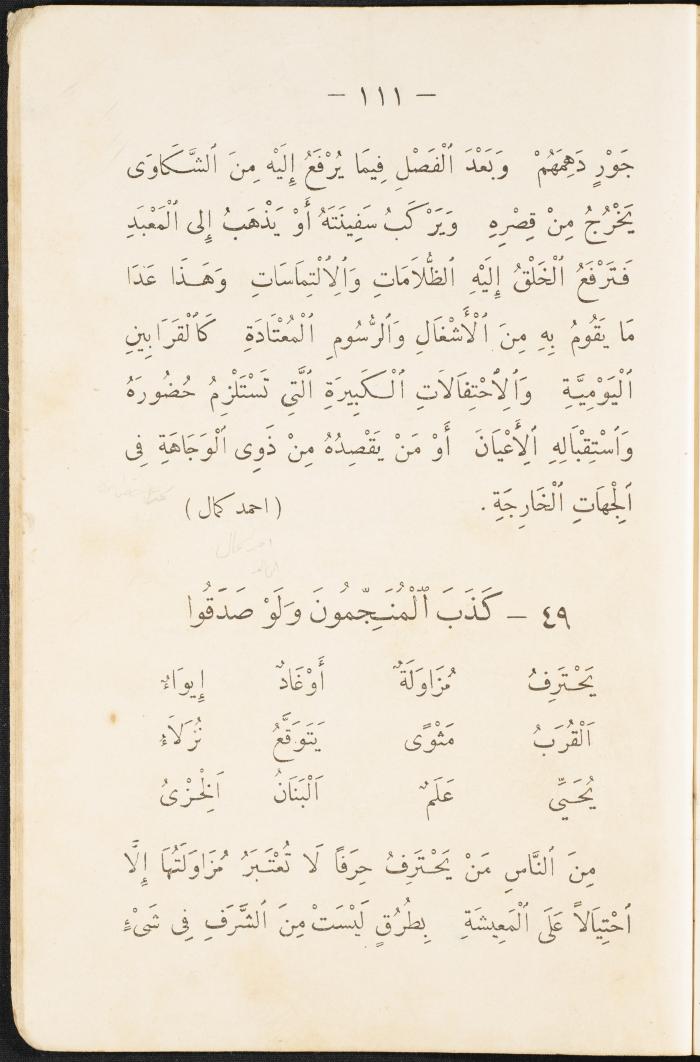 — ١١١ —
جَوْرٍ دَهِمَهُمْ وَبَعْدَ ٱلْفَصْلِ فِيمَا يُرْفَعُ إِلَيْهِ مِنَ ٱلشَّكَاوَى
يَخْرُجُ مِنْ قِصْرِهِ وَيَرْكَبُ سَفِينَتَهُ أَوْ يَذْهَبُ إِلى ٱلْمَعْبَدِ
فَتَرْفَعُ ٱلْخَلْقُ إِلَيْهِ ٱلظُّلَامَاتِ وَٱلِٱلْتِمَاسَاتِ وَهَذَا عَدَا
مَا يَقُومُ بِهِ مِنَ ٱلْأَشْغَالِ وَٱلرُّسُومِ ٱلْمُعْتَادَةِ كَٱلْقَرَابِينِ
ٱلْيَوْمِيَّةِ وَٱلِٱحْتِفَالَاتِ ٱلْكَبِيرَةِ ٱلَّتِي تَسْتَلْزِمُ حُضُورَهُ
وَٱسْتِقْبَالِهِ ٱلِأَعْيَانَ أَوْ مَنْ يَقْصِدُهُ مِنْ ذَوِى ٱلْوَجَاهَةِ فِى
ٱلْجِهَاتِ ٱلْخَارِجَةِ. (احمد كمال)
٤٩ — كَذَبَ ٱلْمُنَجِّمُونَ وَلَوْ صَدَقُوا
يَحْتَرِفُ مُزَاوَلَةٌ أَوْغَادٌ إِيوَاءٌ
اَلْقُرَبُ مَثْوًى يَتَوَقَّعُ نُزَلَاءُ
يُحَيِّي عَلَمٌ اَلْبَنَانُ اَلْخِزْىُ
مِنَ ٱلنَّاسِ مَنْ يَحْتَرِفُ حِرَفًا لَا تُعْتَبَرُ مُزَاوَلَتُهَا إِلَّا
ٱحْتِيَالًا عَلَى ٱلْمَعِيشَةِ بِطُرُقٍ لَيْسَتْ مِنَ ٱلشَّرَفِ فِى شَىْءٍ